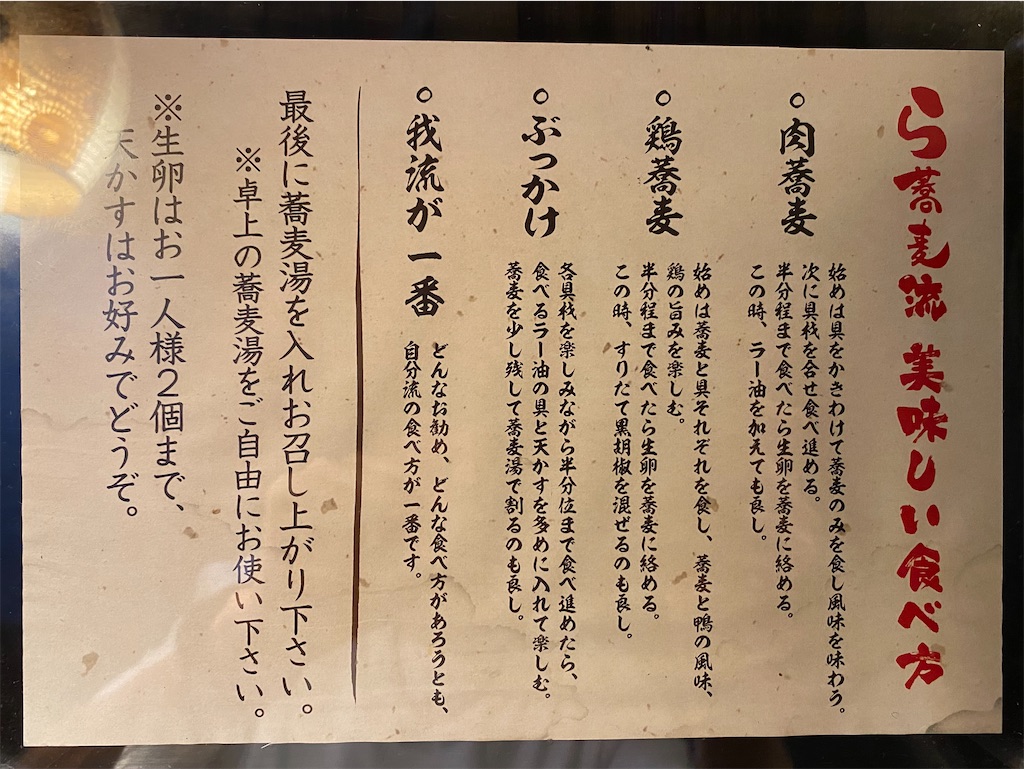 ら蕎麦流 美味しい食べ方
○肉蕎麦
始めは具をかきわけて蕎麦のみを食し風味を味わう。
次に具材を合せ食べ進める。
半分程まで食べたら生卵を蕎麦に絡める。
この時、ラー油を加えても良し。
○鶏蕎麦
始めは蕎麦と具それぞれを食し、蕎麦と鴨の風味、
鶏の旨みを楽しむ。
半分程まで食べたら生卵を蕎麦に絡める。
この時、すりたて黒胡椒を混ぜるのも良し。
○ぶっかけ
各具材を楽しみながら半分位まで食べ進めたら、
食べるラー油の具と天かすを多めに入れて楽しむ。
蕎麦を少し残して蕎麦湯で割るのも良し。
○我流が一番
どんなお勧め、どんな食べ方があろうとも、
自分流の食べ方が一番です。
最後に蕎麦湯を入れお召し上がり下さい。
※卓上の蕎麦湯をご自由にお使い下さい。
※生卵はお一人様2個まで、
天かすはお好みでどうぞ。